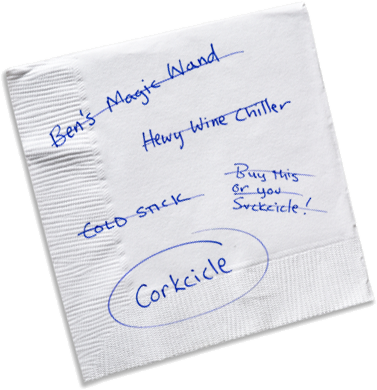 Ben's Magic Wand
Hewy Wine Chiller
COLD STICK
Buy this
or you
Suckcicle!
Corkcicle